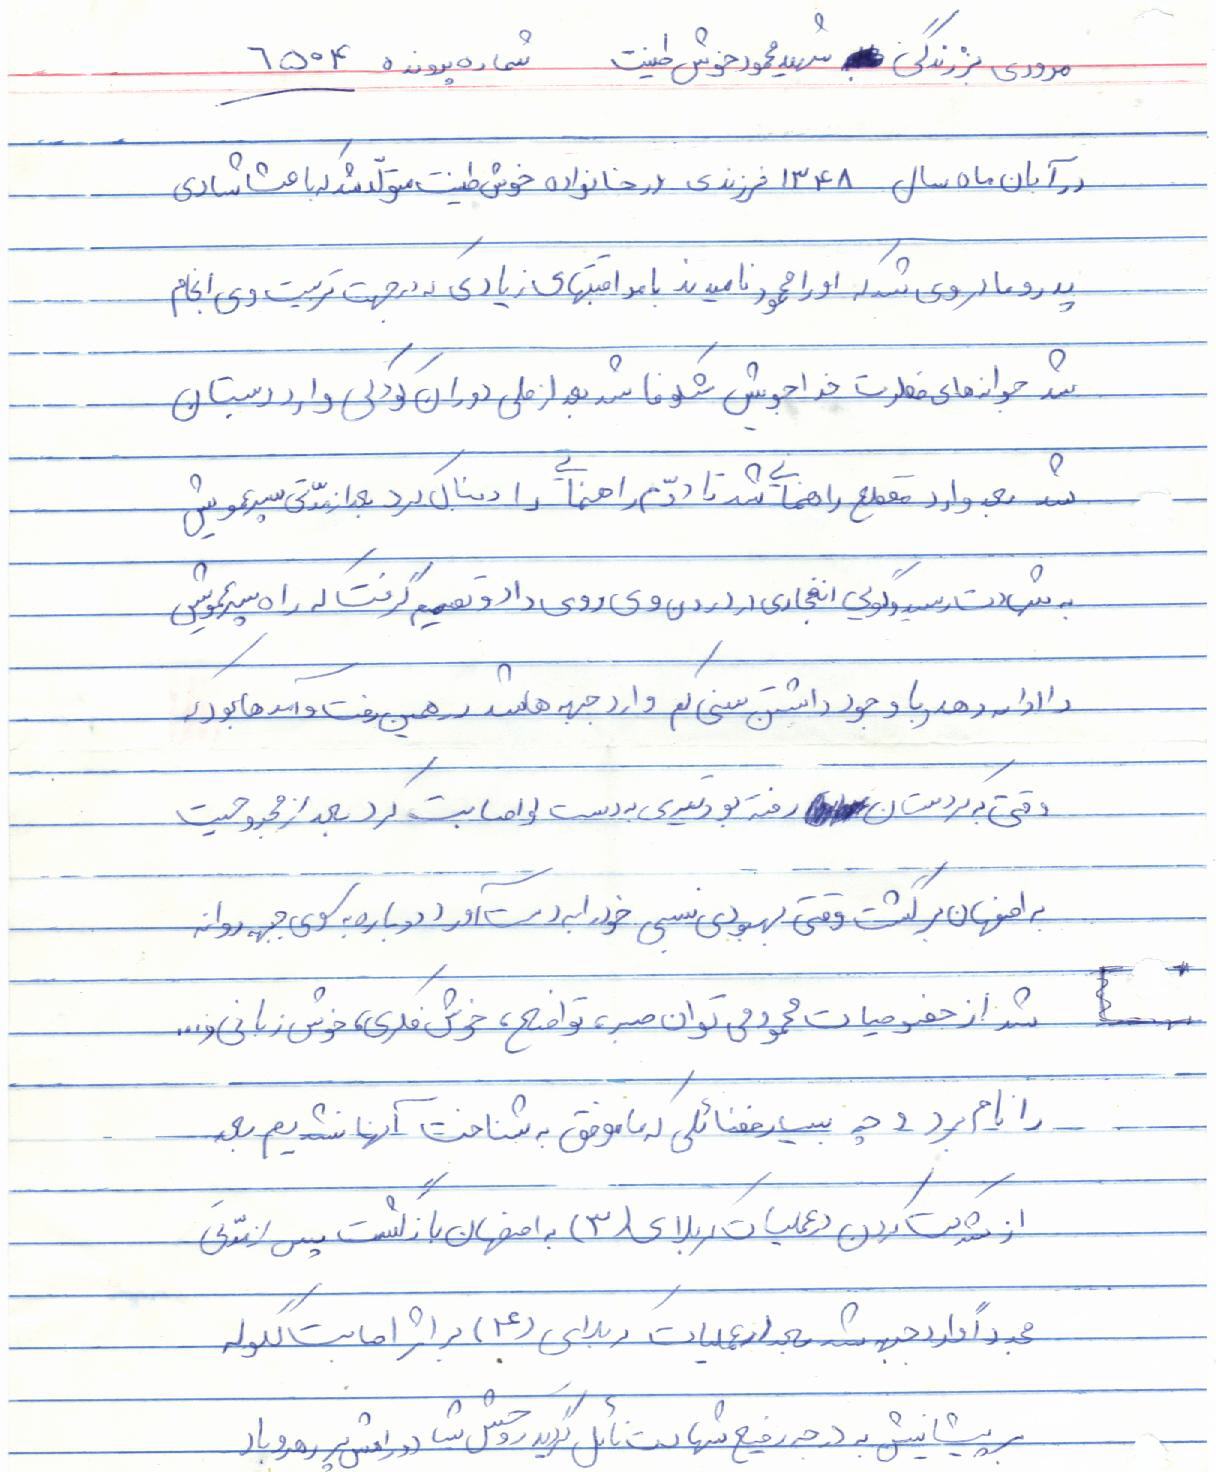 مروری بر زندگی شهید محمود خوش طینت شماره پرونده ۶۵۰۴
در آبان ماه سال ۱۳۴۸ فرزندی در خانواده خوش طینت متولّد شد که باعث شادی
پدر و مادر وی شد که او را محمود نامیدند با مراقبتهای زیادی که در جهت تربیت وی انجام
شد جوانه‌های فطرت خداجویش شکوفا شد بعد از طی دوران کودکی وارد دبستان
شد بعد وارد مقطع راهنمائی شد تا دوّم راهنمائی را دنبال کرد بعد از مدّتی پسرعمویش
به شهادت رسید و گویی انفجاری در درون وی روی داد و تصمیم گرفت که راه پسرعمویش
را ادامه دهد و با وجود داشتن سنی کم وارد جبهه ها شد در همین رفت و آمدها بود که
وقتی به کردستان رفته بود تیری به دست او اصابت کرد بعد از مجروحیت
به اصفهان برگشت وقتی بهبودی نسبی خود را به دست آورد دوباره به سوی جبهه روانه
شد از خصوصیات محمود می توان صبر، تواضع، خوش فکری، خوش زبانی و...
را نام برد و چه بسیار فضائلی که ما موفق به شناخت آنها نشدیم بعد
از شرکت کردن در عملیات کربلای (۳) به اصفهان بازگشت پس از مدّتی
مجدداً وارد جبهه شد بعد از عملیات کربلای (۴) بر اثر اصابت گلوله
بر پیشانیش به درجه رفیع شهادت نائل گردید روحش شاد و راهش پر رهرو باد